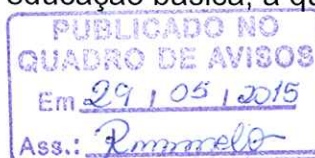 educação básica, a qu
PUBLICADO NO
QUADRO DE AVISOS
Em 29 / 05 / 2015
Ass.: